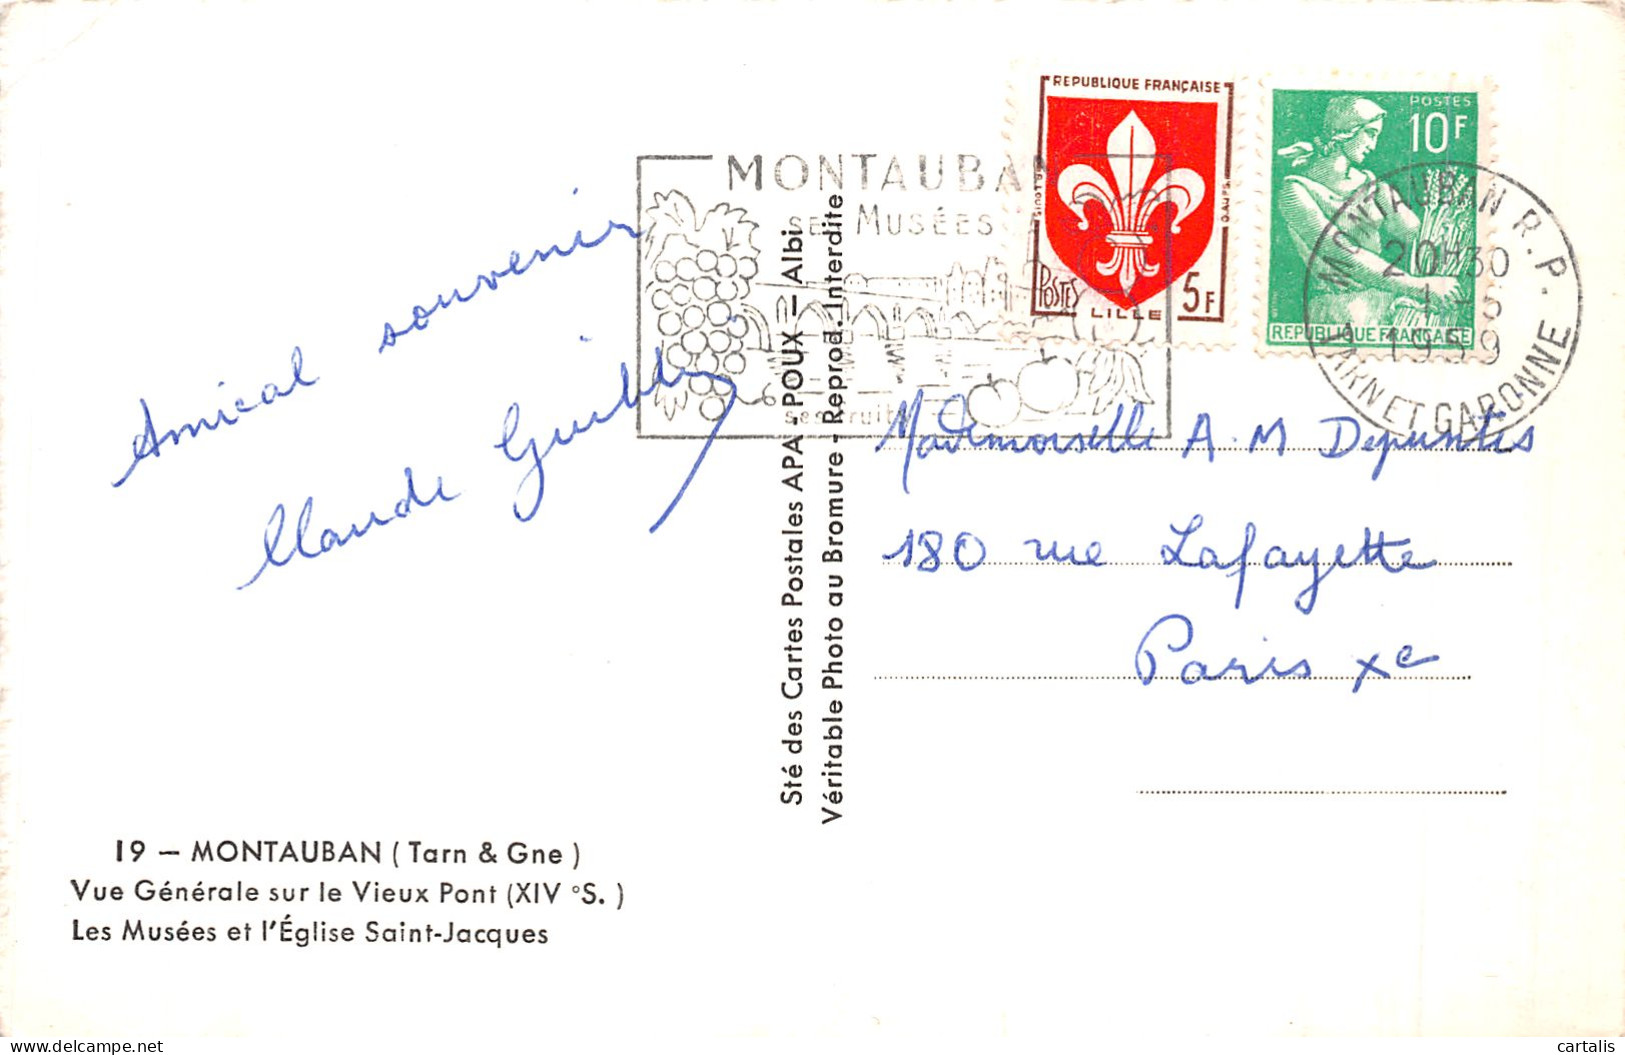 MONTAUBAN
SES MUSÉES
ses fruits
REPUBLIQUE FRANÇAISE
POSTES
5F
LILLE
POSTES
10F
REPUBLIQUE FRANÇAISE
MONTAUBAN R.P.
20H30
1-5
1959
TARN ET GARONNE
Amical souvenir
Claude
Sté des Cartes Postales APA - POUX — Albi
Véritable Photo au Bromure - Reprod. Interdite
Mademoiselle A.M Depuntis
180 rue Lafayette
Paris Xe
19 — MONTAUBAN ( Tarn & Gne )
Vue Générale sur le Vieux Pont (XIV °S. )
Les Musées et l'Église Saint-Jacques
delcampe.net
cartalis